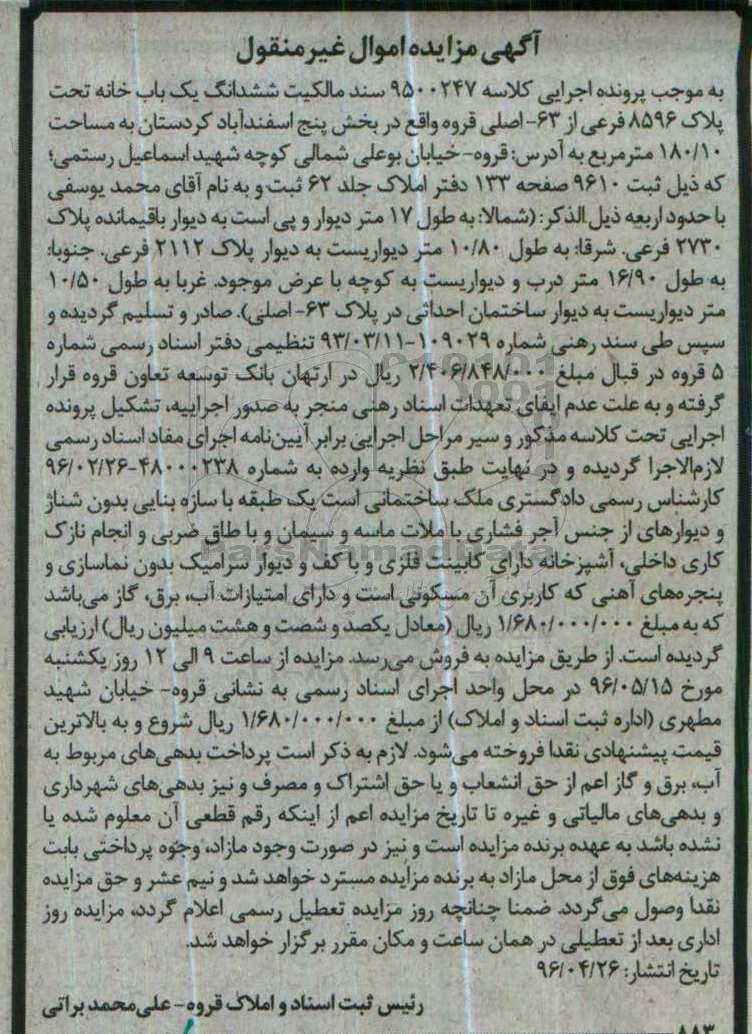 آگهی مزایده اموال غیرمنقول
به موجب پرونده اجرایی کلاسه ۹۵۰۰۲۴۷ سند مالکیت ششدانگ یک باب خانه تحت
پلاک ۸۵۹۶ فرعی از ۶۳- اصلی قروه واقع در بخش پنج اسفندآباد کردستان به مساحت
۱۸۰/۱۰ مترمربع به آدرس: قروه- خیابان بوعلی شمالی کوچه شهید اسماعیل رستمی؛
که ذیل ثبت ۹۶۱۰ صفحه ۱۳۳ دفتر املاک جلد ۶۲ ثبت و به نام آقای محمد یوسفی
با حدود اربعه ذیل الذکر: (شمالا: به طول ۱۷ متر دیوار و پی است به دیوار باقیمانده پلاک
۲۷۳۰ فرعی. شرقا: به طول ۱۰/۸۰ متر دیواریست به دیوار پلاک ۲۱۱۲ فرعی. جنوبا:
به طول ۱۶/۹۰ متر درب و دیواریست به کوچه با عرض موجود. غربا به طول ۱۰/۵۰
متر دیواریست به دیوار ساختمان احداثی در پلاک ۶۳- اصلی). صادر و تسلیم گردیده و
سپس طی سند رهنی شماره ۱۰۹۰۲۹-۹۳/۰۳/۱۱ تنظیمی دفتر اسناد رسمی شماره
۵ قروه در قبال مبلغ ۲/۴۰۶/۸۴۸/۰۰۰ ریال در ارتهان بانک توسعه تعاون قروه قرار
گرفته و به علت عدم ایفای تعهدات اسناد رهنی منجر به صدور اجراییه، تشکیل پرونده
اجرایی تحت کلاسه مذکور و سیر مراحل اجرایی برابر آیین‌نامه اجرای مفاد اسناد رسمی
لازم‌الاجرا گردیده و در نهایت طبق نظریه وارده به شماره ۴۸۰۰۰۲۳۸-۹۶/۰۲/۲۶
کارشناس رسمی دادگستری ملک ساختمانی است یک طبقه با سازه بنایی بدون شناژ
و دیوارهای از جنس آجر فشاری با ملات ماسه و سیمان و با طاق ضربی و انجام نازک
کاری داخلی، آشپزخانه دارای کابینت فلزی و با کف و دیوار سرامیک بدون نماسازی و
پنجره‌های آهنی که کاربری آن مسکونی است و دارای امتیازات آب، برق، گاز می‌باشد
که به مبلغ ۱/۶۸۰/۰۰۰/۰۰۰ ریال (معادل یکصد و شصت و هشت میلیون ریال) ارزیابی
گردیده است. از طریق مزایده به فروش می‌رسد. مزایده از ساعت ۹ الی ۱۲ روز یکشنبه
مورخ ۹۶/۰۵/۱۵ در محل واحد اجرای اسناد رسمی به نشانی قروه- خیابان شهید
مطهری (اداره ثبت اسناد و املاک) از مبلغ ۱/۶۸۰/۰۰۰/۰۰۰ ریال شروع و به بالاترین
قیمت پیشنهادی نقدا فروخته می‌شود. لازم به ذکر است پرداخت بدهی‌های مربوط به
آب، برق و گاز اعم از حق انشعاب و یا حق اشتراک و مصرف و نیز بدهی‌های شهرداری
و بدهی‌های مالیاتی و غیره تا تاریخ مزایده اعم از اینکه رقم قطعی آن معلوم شده یا
نشده باشد به عهده برنده مزایده است و نیز در صورت وجود مازاد، وجوه پرداختی بابت
هزینه‌های فوق از محل مازاد به برنده مزایده مسترد خواهد شد و نیم عشر و حق مزایده
نقدا وصول می‌گردد. ضمنا چنانچه روز مزایده تعطیل رسمی اعلام گردد، مزایده روز
اداری بعد از تعطیلی در همان ساعت و مکان مقرر برگزار خواهد شد.
تاریخ انتشار: ۹۶/۰۴/۲۶
رئیس ثبت اسناد و املاک قروه- علی‌محمد براتی